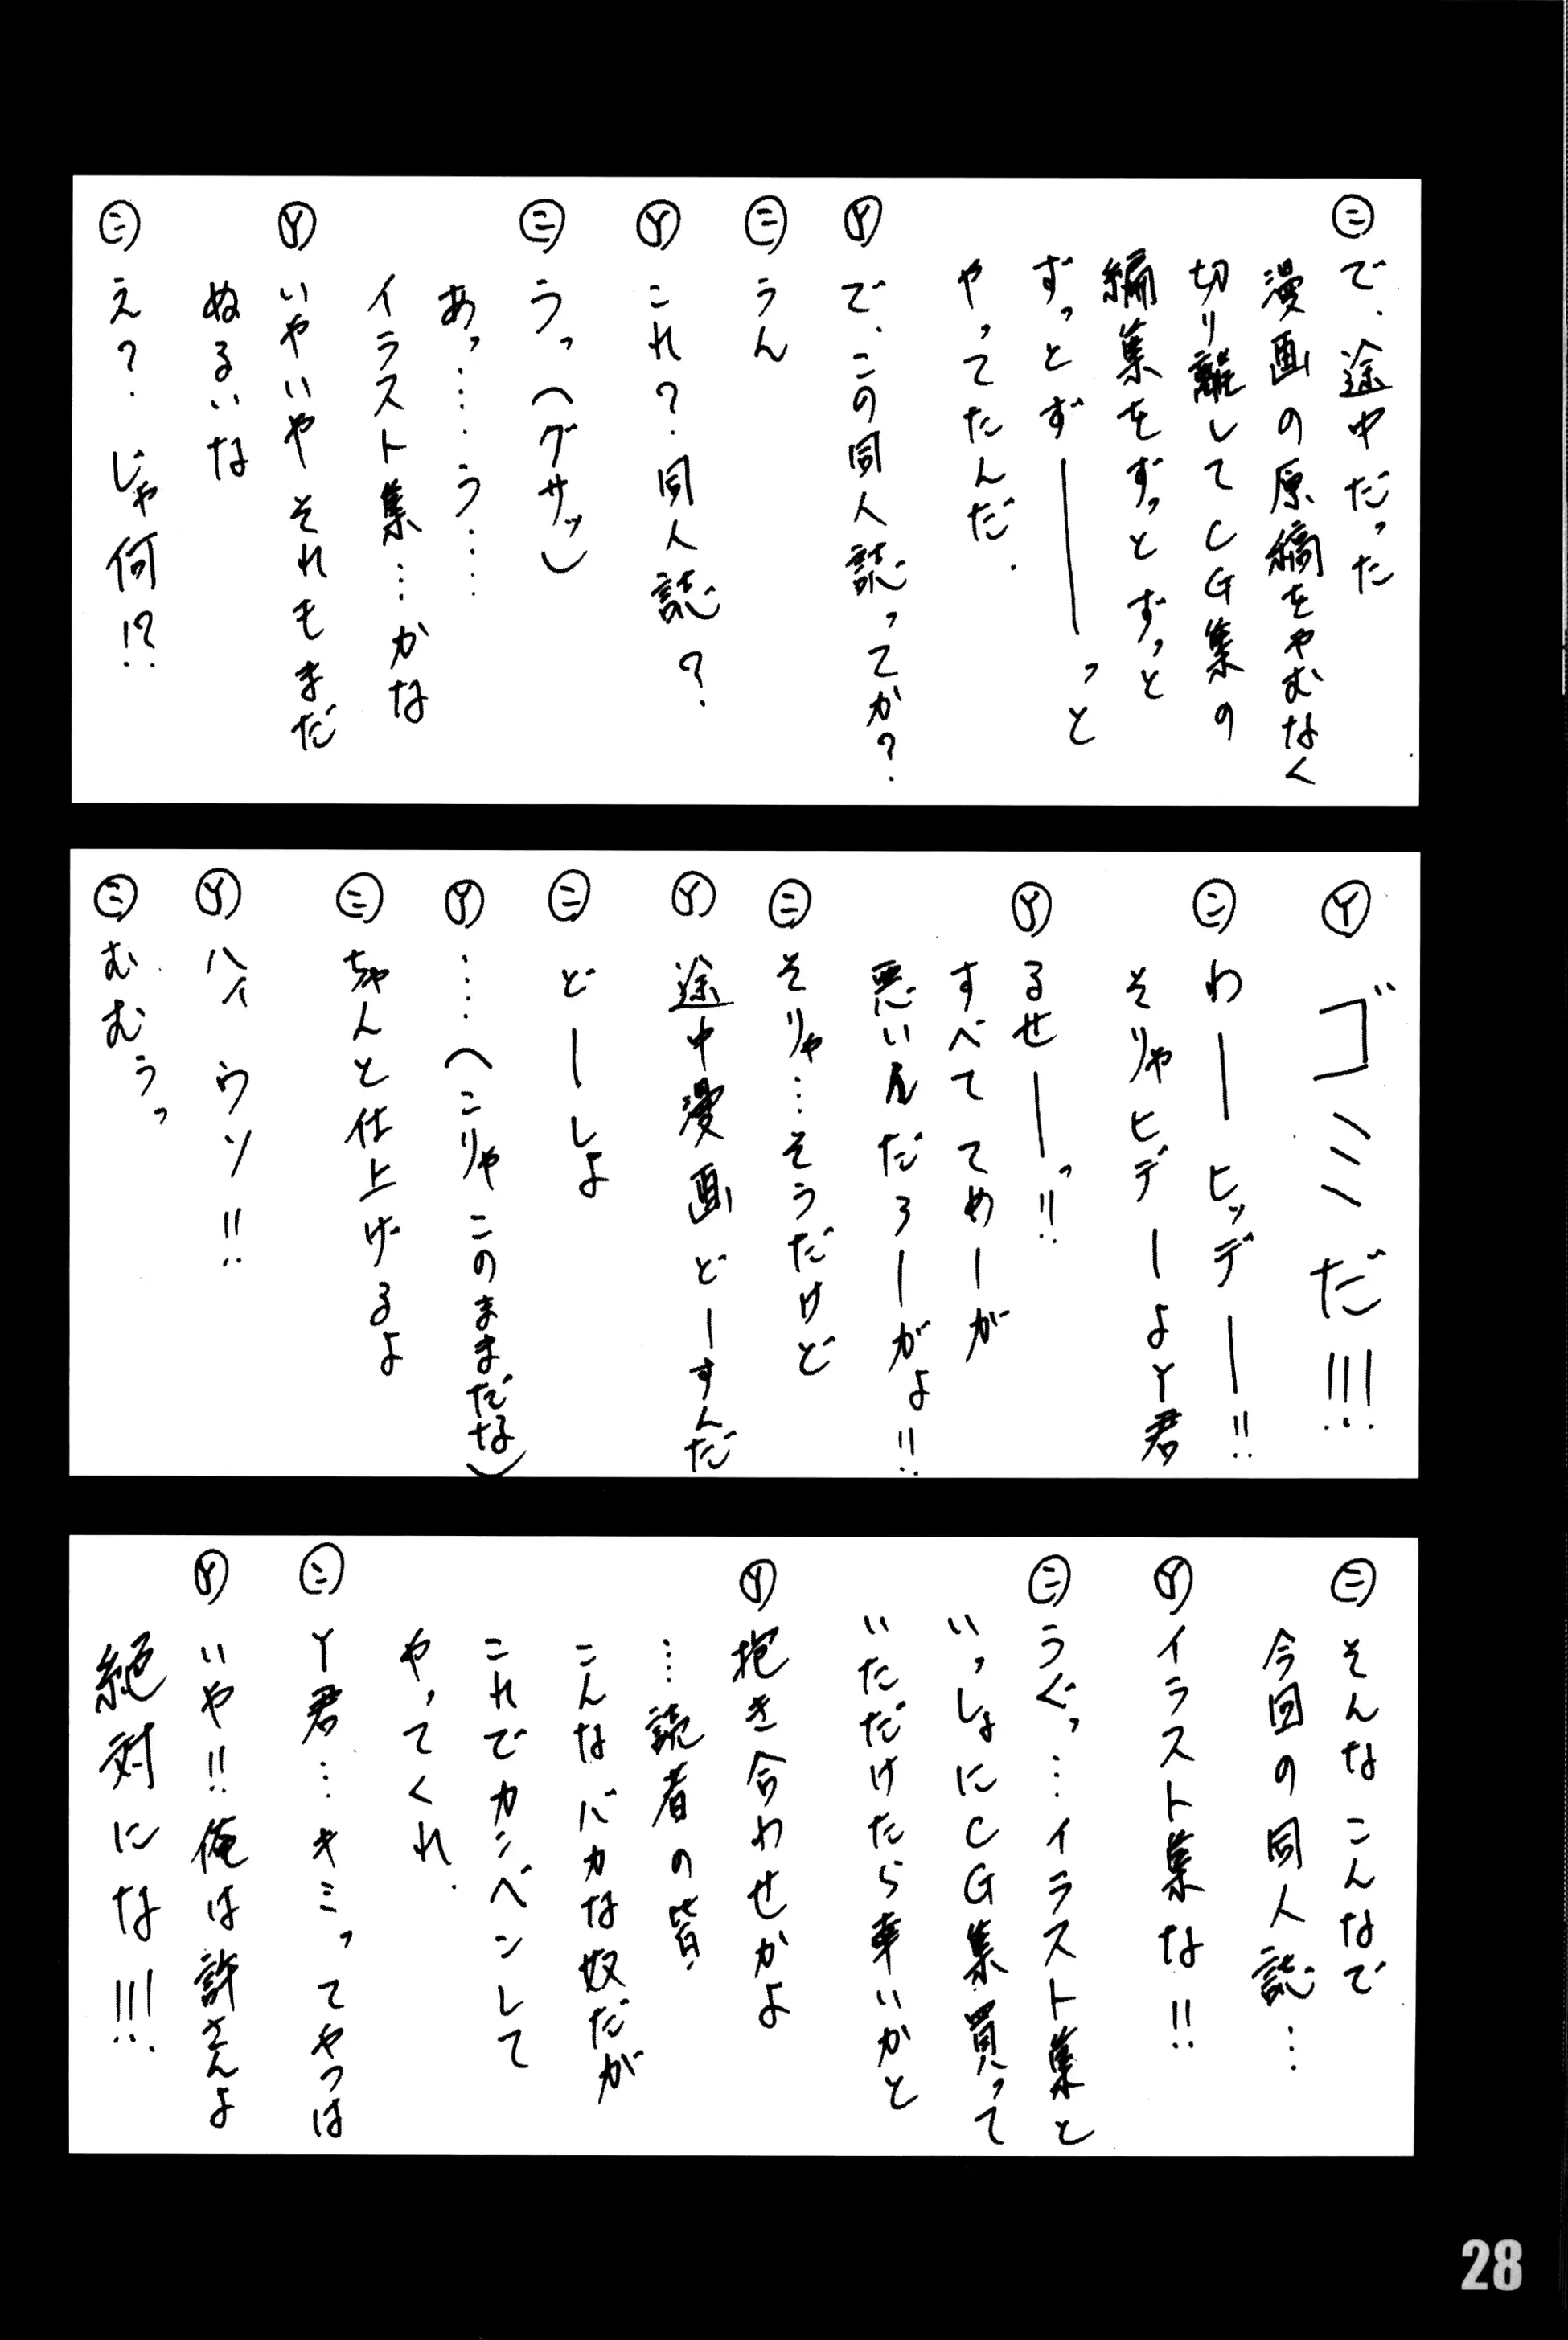 ㊁で、途中だった
漫画の原稿をやむなく
切り離してCG集の
編集をずっとずっと
ずっとずーーーっと
やってたんだ.
Ⓨで、この同人誌ってか?
㊁うん
Ⓨこれ?同人誌?
㊁うっ(グサッ)
あっ……う……
イラスト集…かな
Ⓨいやいやそれもまだ
ぬるいな
㊁え?じゃ何!?
Ⓨゴミだ!!!
㊁わーーヒッデーー!!
そりゃヒデーよY君
Ⓨるせーーっ!!
すべててめーが
悪いんだろーがよ!!
㊁そりゃ…そうだけど
Ⓨ途中漫画どーすんだ
㊁どーしよ
Ⓨ……(こりゃこのままだな)
㊁ちゃんと仕上げるよ
Ⓨハイ ウソ!!
㊁むむぅっ
㊁そんなこんなで
今回の同人誌…
Ⓨイラスト集な!!
㊁うぐっ…イラスト集と
いっしょにCG集買って
いただけたら幸いかと
Ⓨ抱き合わせかよ
…読者の皆、
こんなバカな奴だが
これでカンベンして
やってくれ.
㊁Y君…キミってやつは
Ⓨいや!!俺は許さんよ
絶対にな!!!
28